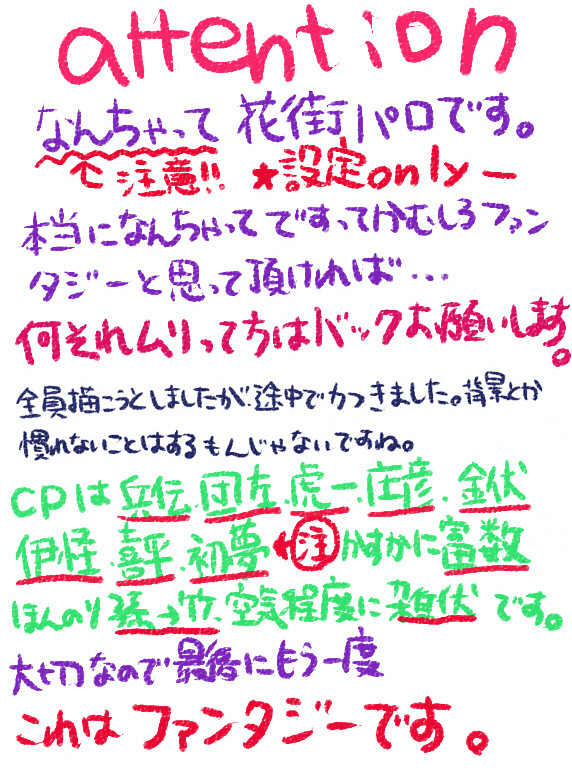 attention
なんちゃって 花街パロです。
↑注意!! ★設定onlyー
本当になんちゃってですってかむしろファン
タジーと思って頂ければ・・・
何それムリって方はバックお願いします。
全員描こうとしましたが途中で力つきました。背景とか
慣れないことはするもんじゃないですね。
CPは兵伝.団左.虎一.庄彦.金伏
伊怪.喜平.初夢←注 かすかに富数
ほんのり孫→竹.空気程度に雑伏です。
大切なので最後にもう一度
これはファンタジーです。